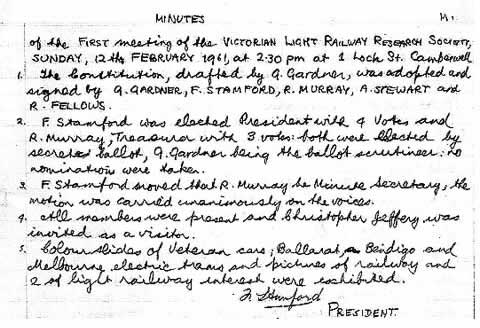 MINUTES
of the FIRST meeting of the VICTORIAN LIGHT RAILWAY RESEARCH SOCIETY,
SUNDAY, 12th FEBRUARY 1961, at 2.30 pm at 1 Lock St. Camberwell
1. The Constitution, drafted by G. Gardner, was adopted and
signed by G. GARDNER, F. STAMFORD, R. MURRAY, A. STEWART and
R. FELLOWS.
2. F. Stamford was elected President with 4 Votes and
R. Murray, Treasurer with 3 votes: both were elected by
secret ballot, G. Gardner being the ballot scrutineer: no
nominations were taken.
3. F. Stamford moved that R. Murray be Minute Secretary, the
motion was carried unanimously on the voices.
4. All members were present and Christopher Jeffery was
invited as a visitor.
5. Colour slides of Veteran cars, Ballarat, Bendigo and
Melbourne electric trams and pictures of railway and
2 of light railway interest were exhibited.
F. Stamford
PRESIDENT.